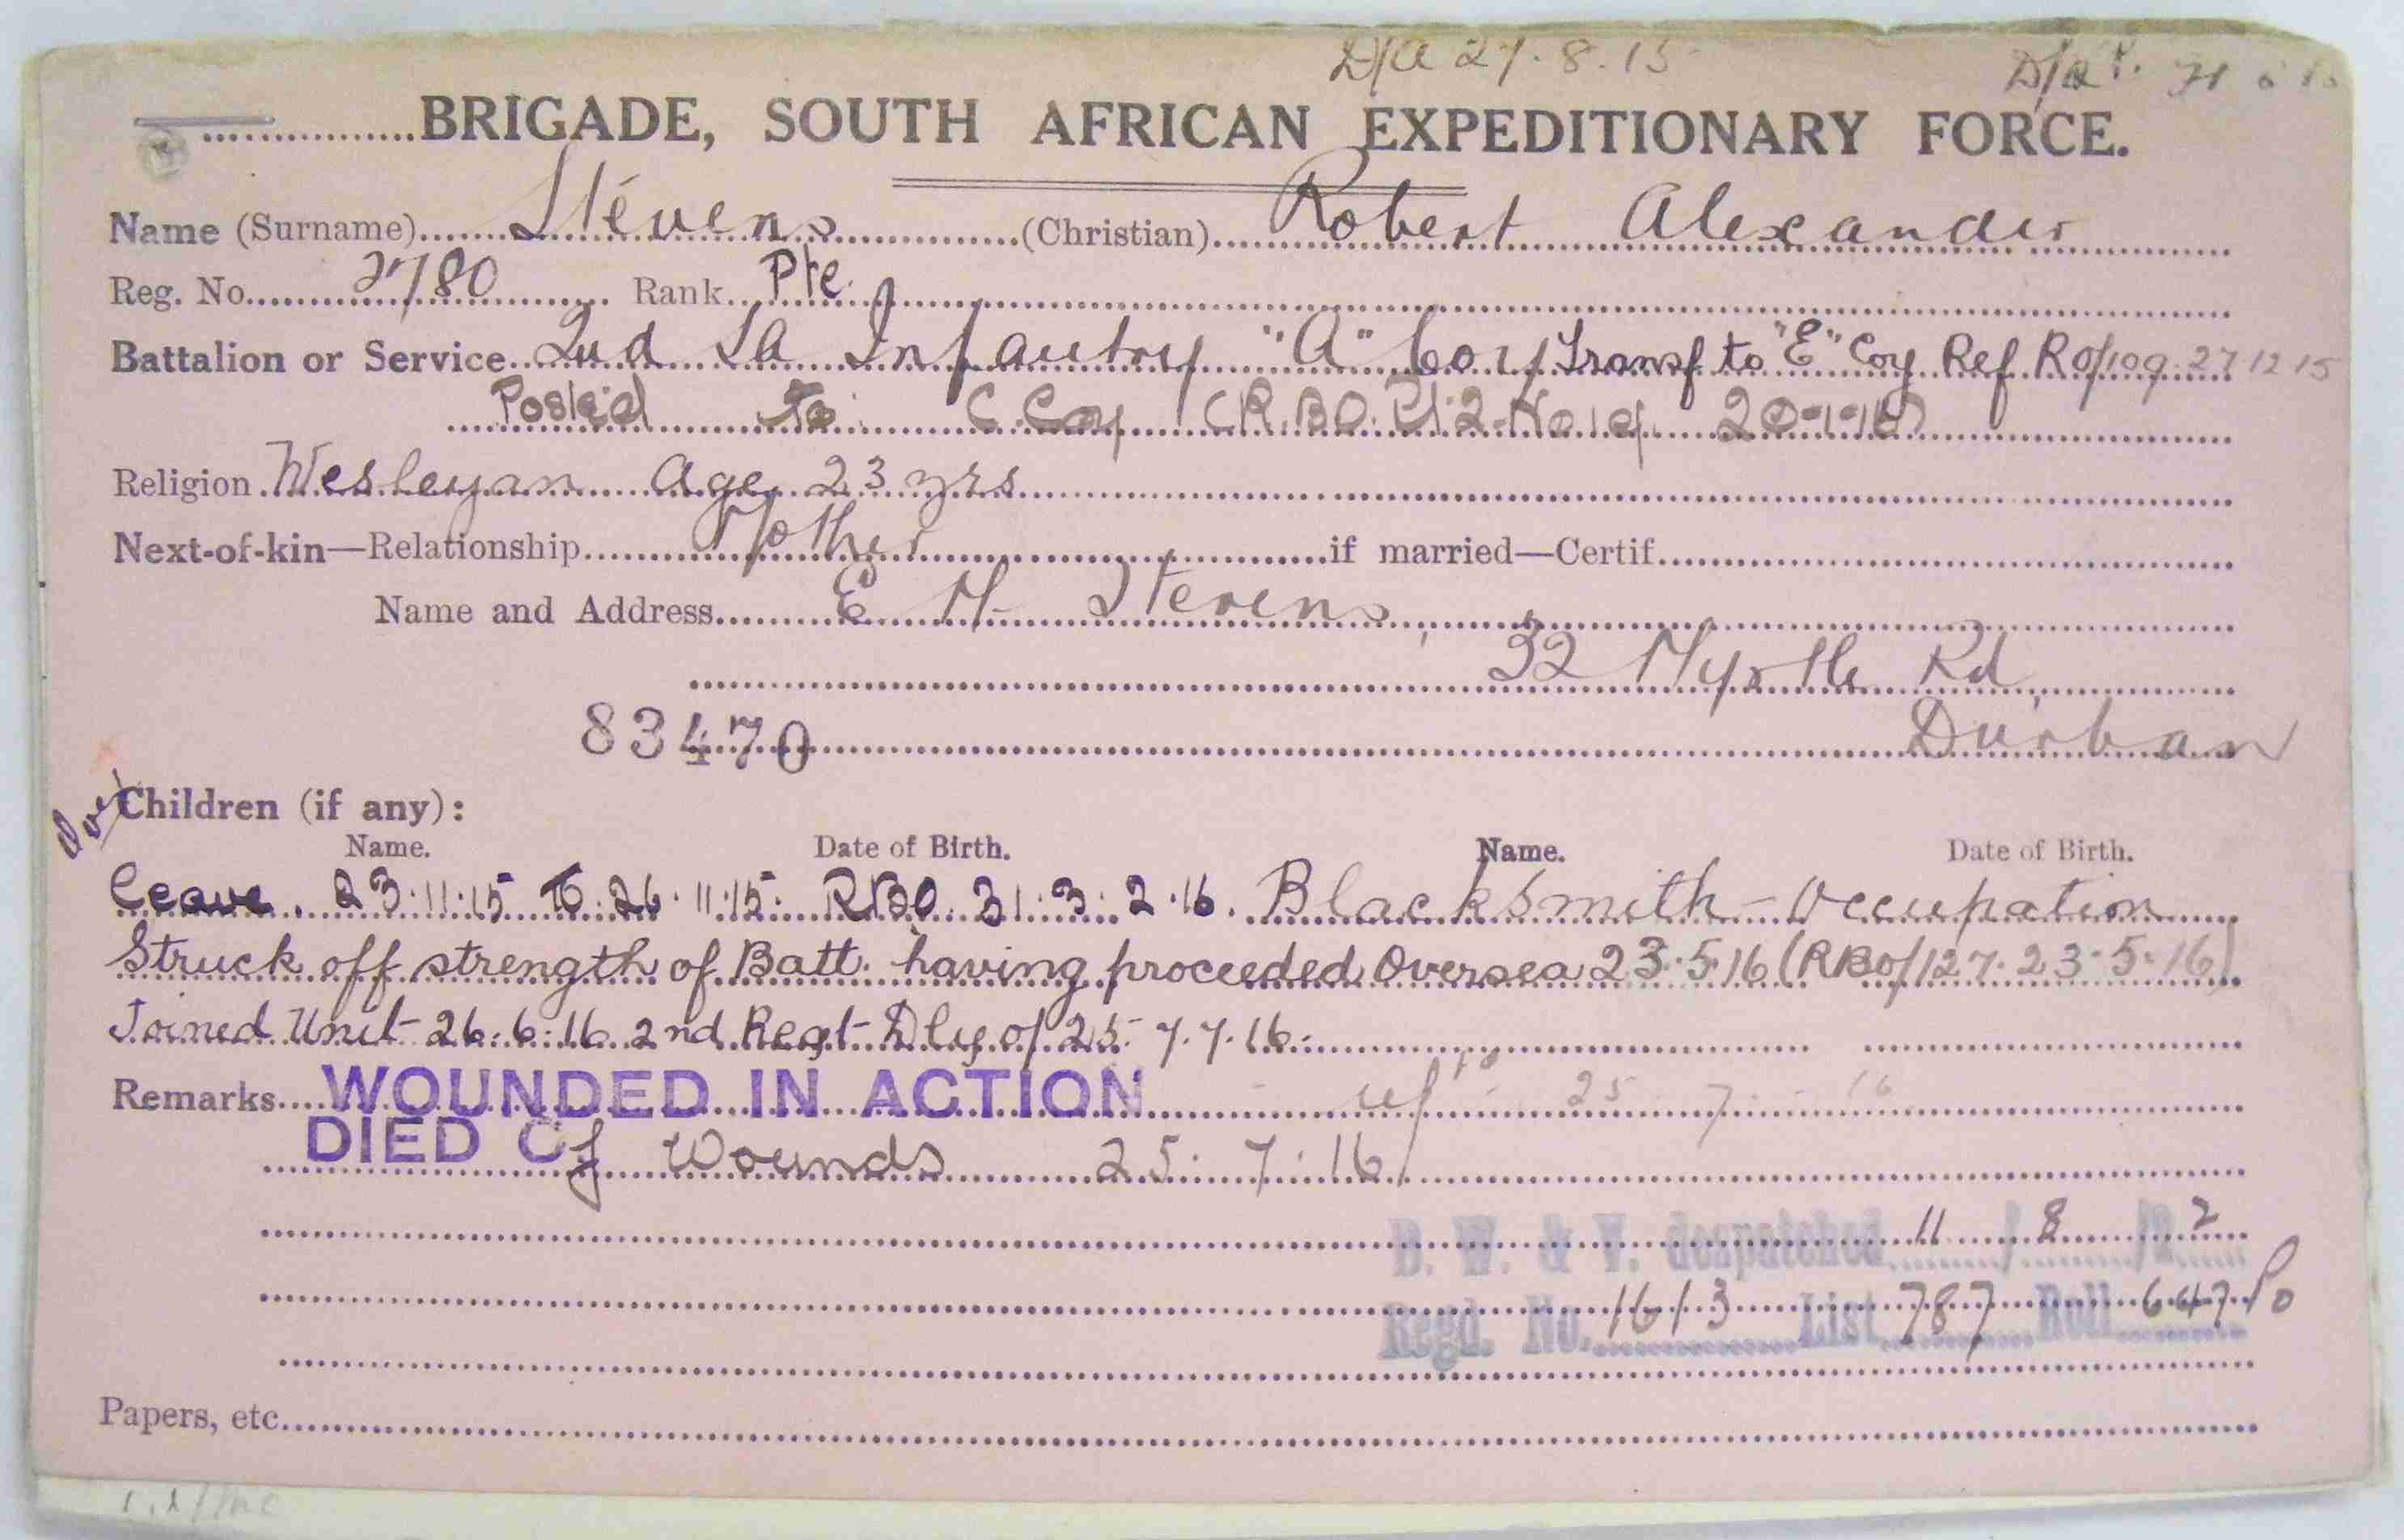 D/A 27.8.15
BRIGADE, SOUTH AFRICAN EXPEDITIONARY FORCE.
Name (Surname) Stevens (Christian) Robert Alexander
Reg. No. 2780 Rank Pte.
Battalion or Service 2nd SA Infantry "A" Coy Transf to "E" Coy Ref RO/109 27 12 15
Posted To C Coy
Religion Wesleyan Age 23 yrs
Next-of-kin—Relationship Mother if married—Certif.
Name and Address E M Stevens,
32 Myrtle Rd,
83470 Durban
Over
Children (if any):
Name. Date of Birth. Name. Date of Birth.
Leave. 23.11.15 To 26.11.15. RBO. 31. 3. 2.16. Blacksmith - Occupation
Struck off strength of Batt. having proceeded Oversea 23.5.16 (RBO/127. 23.5.16)
Joined Unit 26.6.16 2nd Regt Dly of 25. 7.7.16.
Remarks WOUNDED IN ACTION 25 7 16
DIED Of Wounds 25.7.16
B. W. & V. despatched 11/8/22
Regd. No. 1613 List 787 Roll 647 Po
Papers, etc.